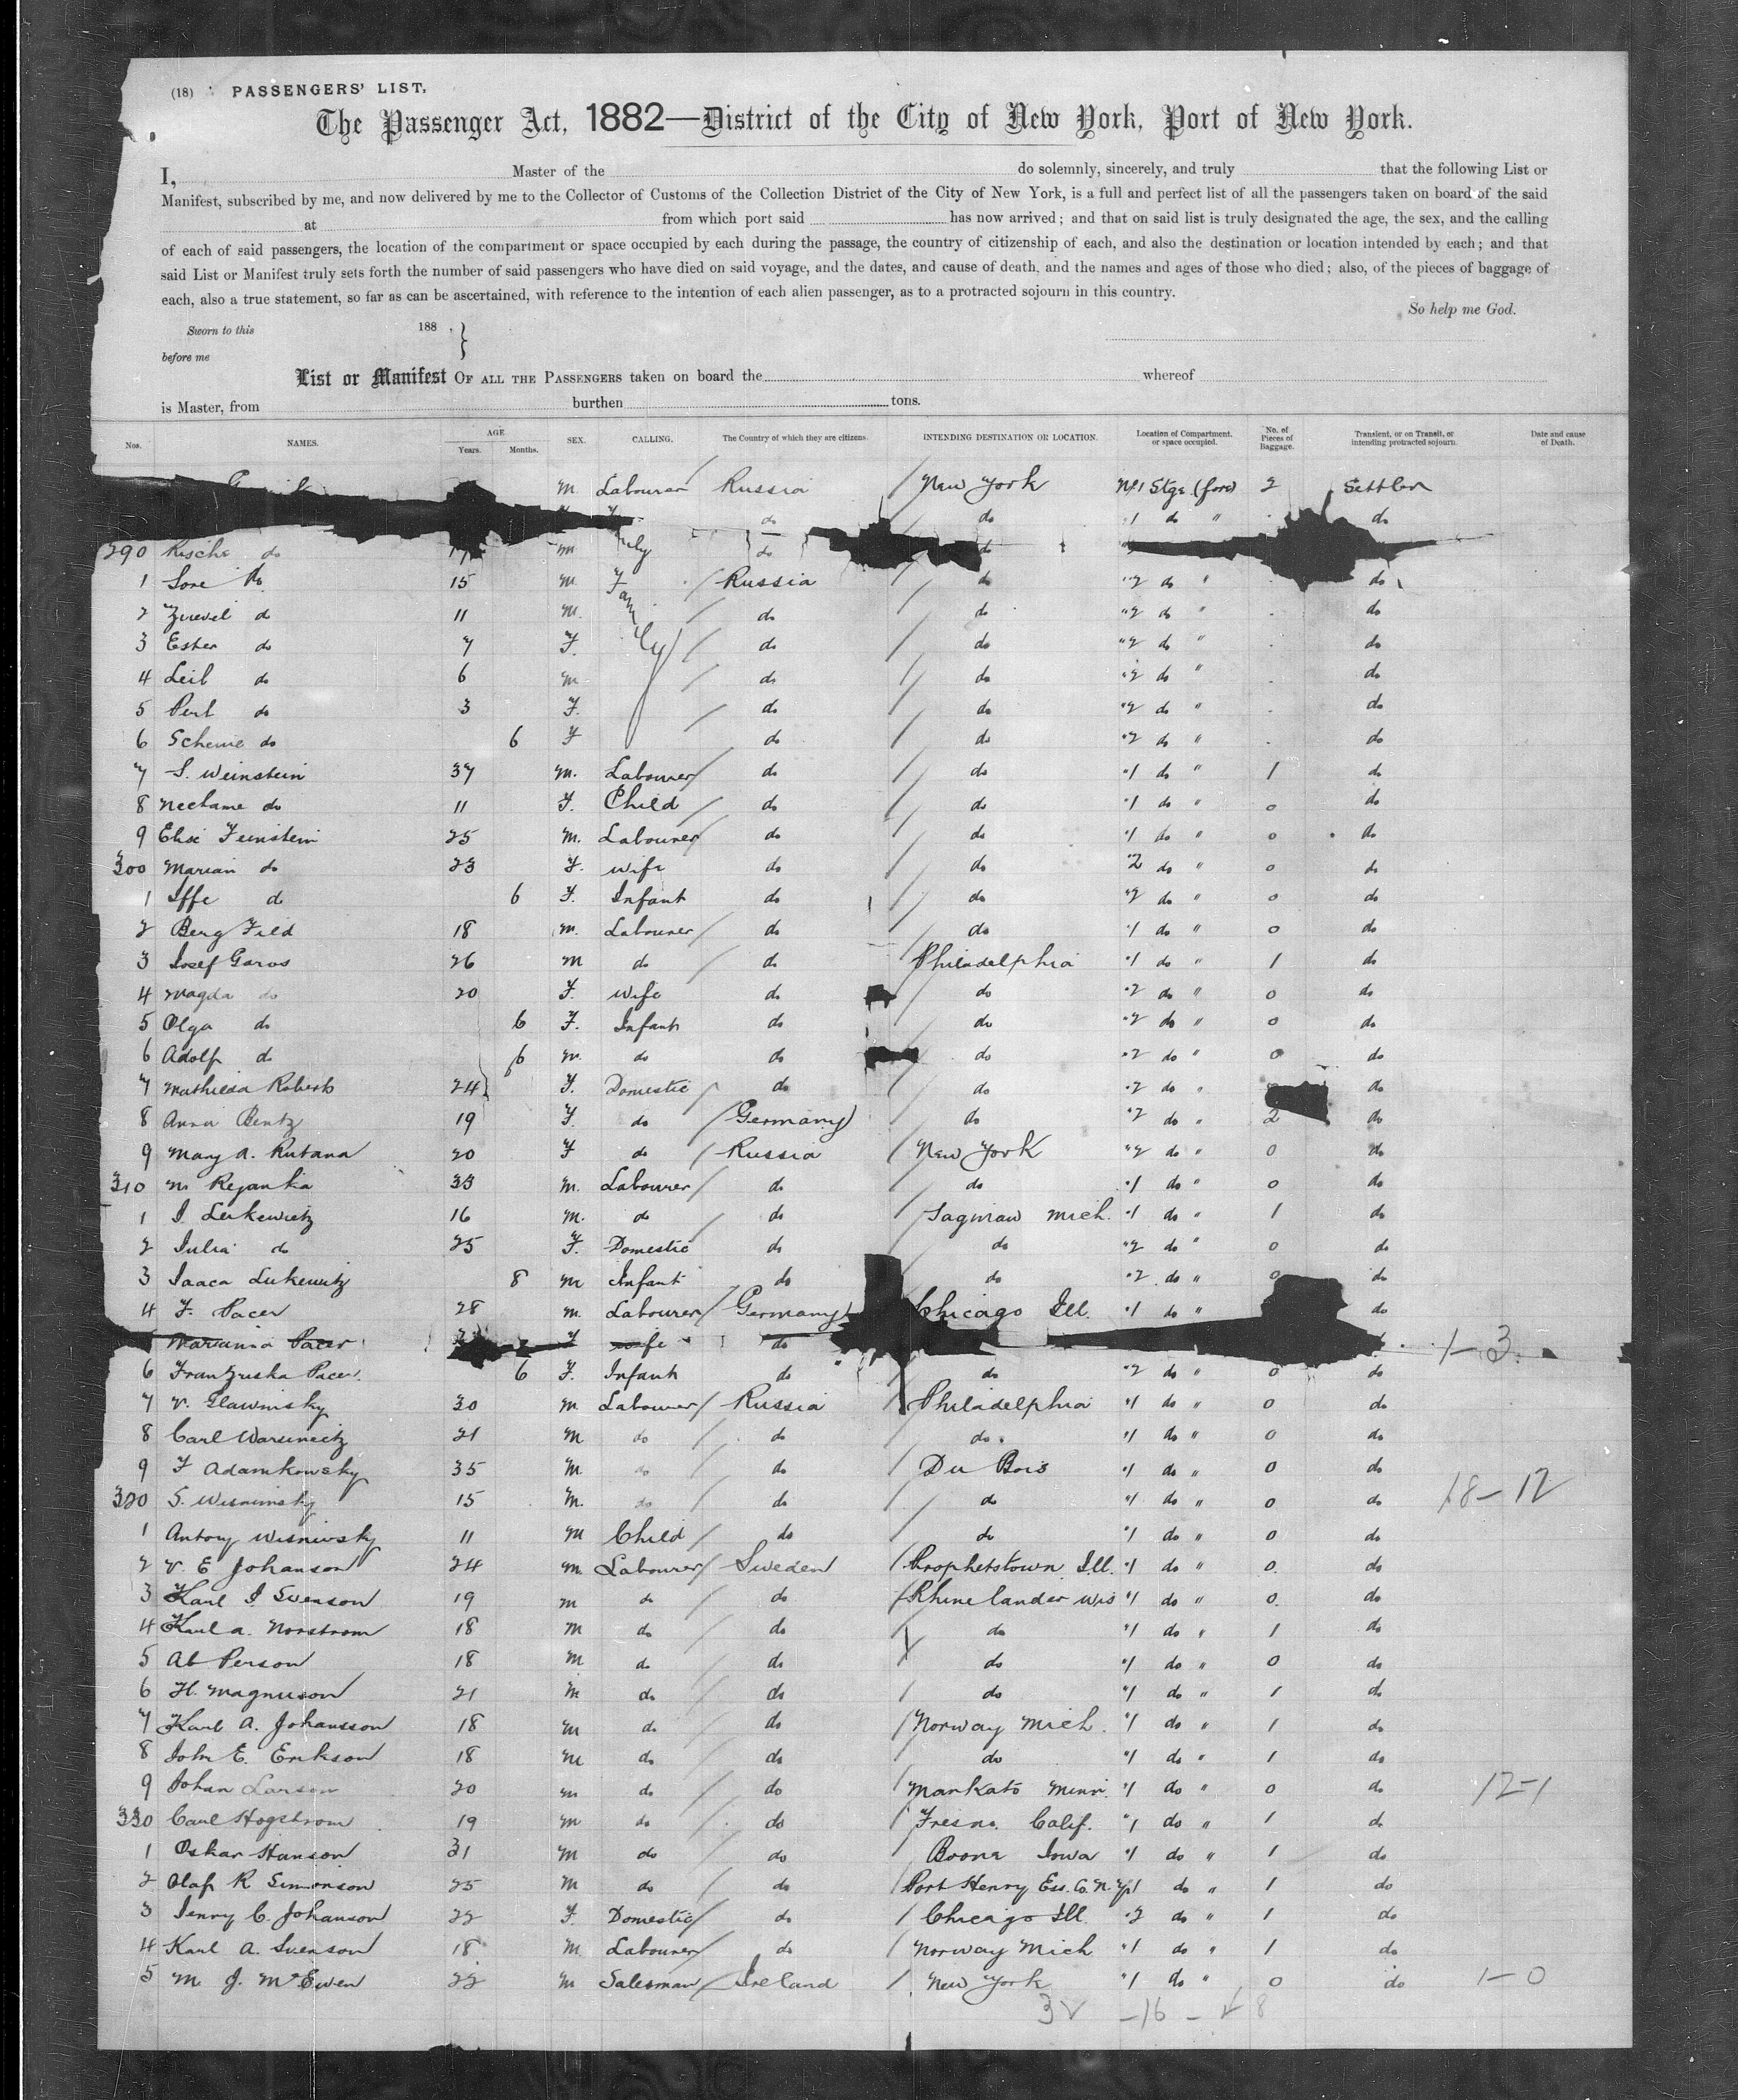 (18) PASSENGERS' LIST.
The Passenger Act, 1882—District of the City of New York, Port of New York.
I, Master of the do solemnly, sincerely, and truly that the following List or
Manifest, subscribed by me, and now delivered by me to the Collector of Customs of the Collection District of the City of New York, is a full and perfect list of all the passengers taken on board of the said
at from which port said has now arrived; and that on said list is truly designated the age, the sex, and the calling
of each of said passengers, the location of the compartment or space occupied by each during the passage, the country of citizenship of each, and also the destination or location intended by each; and that
said List or Manifest truly sets forth the number of said passengers who have died on said voyage, and the dates, and cause of death, and the names and ages of those who died; also, of the pieces of baggage of
each, also a true statement, so far as can be ascertained, with reference to the intention of each alien passenger, as to a protracted sojourn in this country.
So help me God.
Sworn to this 188 .
before me
List or Manifest OF ALL THE PASSENGERS taken on board the whereof
is Master, from burthen tons.
Nos. NAMES. AGE Years. Months. SEX. CALLING. The Country of which they are citizens. INTENDING DESTINATION OR LOCATION. Location of Compartment, or space occupied. No. of Pieces of Baggage. Transient, or on Transit, or intending protracted sojourn. Date and cause of Death.
M Labourer Russia New York No 1 Stge (fore) 2 Settler
do do "1 do " do
290 Rische do m do do
1 Sore do 15 m. Family Russia do "2 do " do
2 do 11 m. do do "2 do " do
3 Ester do 7 F. do do "2 do " do
4 Leib do 6 m do do "2 do " do
5 Perl do 3 F. do do "2 do " do
6 Scheine do 6 F do do "2 do " do
7 S. Weinstein 37 m. Labourer do do "1 do " 1 do
8 Nechame do 11 F. Child do do "1 do " 0 do
9 Feinstein 25 m. Labourer do do "1 do " 0 do
300 Marian do 23 F. wife do do "2 do " 0 do
1 Iffe do 6 F. Infant do do "2 do " 0 do
2 Berg Feld 18 m. Labourer do do "1 do " 0 do
3 Josef Garos 26 m do do Philadelphia "1 do " 1 do
4 Magda do 20 F. wife do do "2 do " 0 do
5 Olga do 6 F. Infant do do "2 do " 0 do
6 Adolf do 6 m. do do do "2 do " 0 do
7 Mathilda Roberts 24 F. Domestic do do "2 do " do
8 Anna Bentz 19 F. do Germany do "2 do " 2 do
9 Mary A. Rutana 20 F do Russia New York "2 do " 0 do
310 M Rejanka 33 m. Labourer do do "1 do " 0 do
1 J. Lukewitz 16 m. do do Saginaw Mich. "1 do " 1 do
2 Julia do 25 F. Domestic do do "2 do " 0 do
3 Isaca Lukewitz 8 m Infant do do "2 do " 0 do
4 F. Pacer 28 m. Labourer Germany Chicago Ill. "1 do " do
Marianna Pacer F wife do 1-3.
6 Franziska Pacer 6 F. Infant do do "2 do " 0 do
7 V. Slawinsky 30 m Labourer Russia Philadelphia "1 do " 0 do
8 Carl Warsineitz 21 m do do do. "1 do " 0 do
9 F Adamkowsky 35 m do do Du Bois "1 do " 0 do
320 S. Wisnimsky 15 m. do do do "1 do " 0 do 18-12
1 Antony Wisnivsky 11 m Child do do "1 do " 0 do
2 V. E Johanson 24 m Labourer Sweden Prophetstown Ill. "1 do " 0. do
3 Karl J. Svenson 19 m do do Rhinelander Wis "1 do " 0. do
4 Karl A. Norstrom 18 m do do do "1 do " 1 do
5 Ab Person 18 m do do do "1 do " 0 do
6 H. Magnuson 21 m do do do "1 do " 1 do
7 Karl A. Johansson 18 m do do Norway Mich. "1 do " 1 do
8 John E. Erikson 18 m do do do "1 do " 1 do
9 Johan Larsen 20 m do do Mankato Minn. "1 do " 0 do 12-1
330 Carl Hogstrom 19 m do do Fresno. Calif. "1 do " 1 do
1 Oskar Hanson 31 m do do Boone Iowa "1 do " 1 do
2 Olaf R Simonson 25 m do do Port Henry Ess. Co. N. Y. "1 do " 1 do
3 Jenny C. Johanson 22 F. Domestic do Chicago Ill. "2 do " 1 do
4 Karl A. Svenson 18 m. Labourer do Norway Mich "1 do " 1 do
5 M J. McEwen 22 m Salesman Ireland New York "1 do " 0 do 1-0